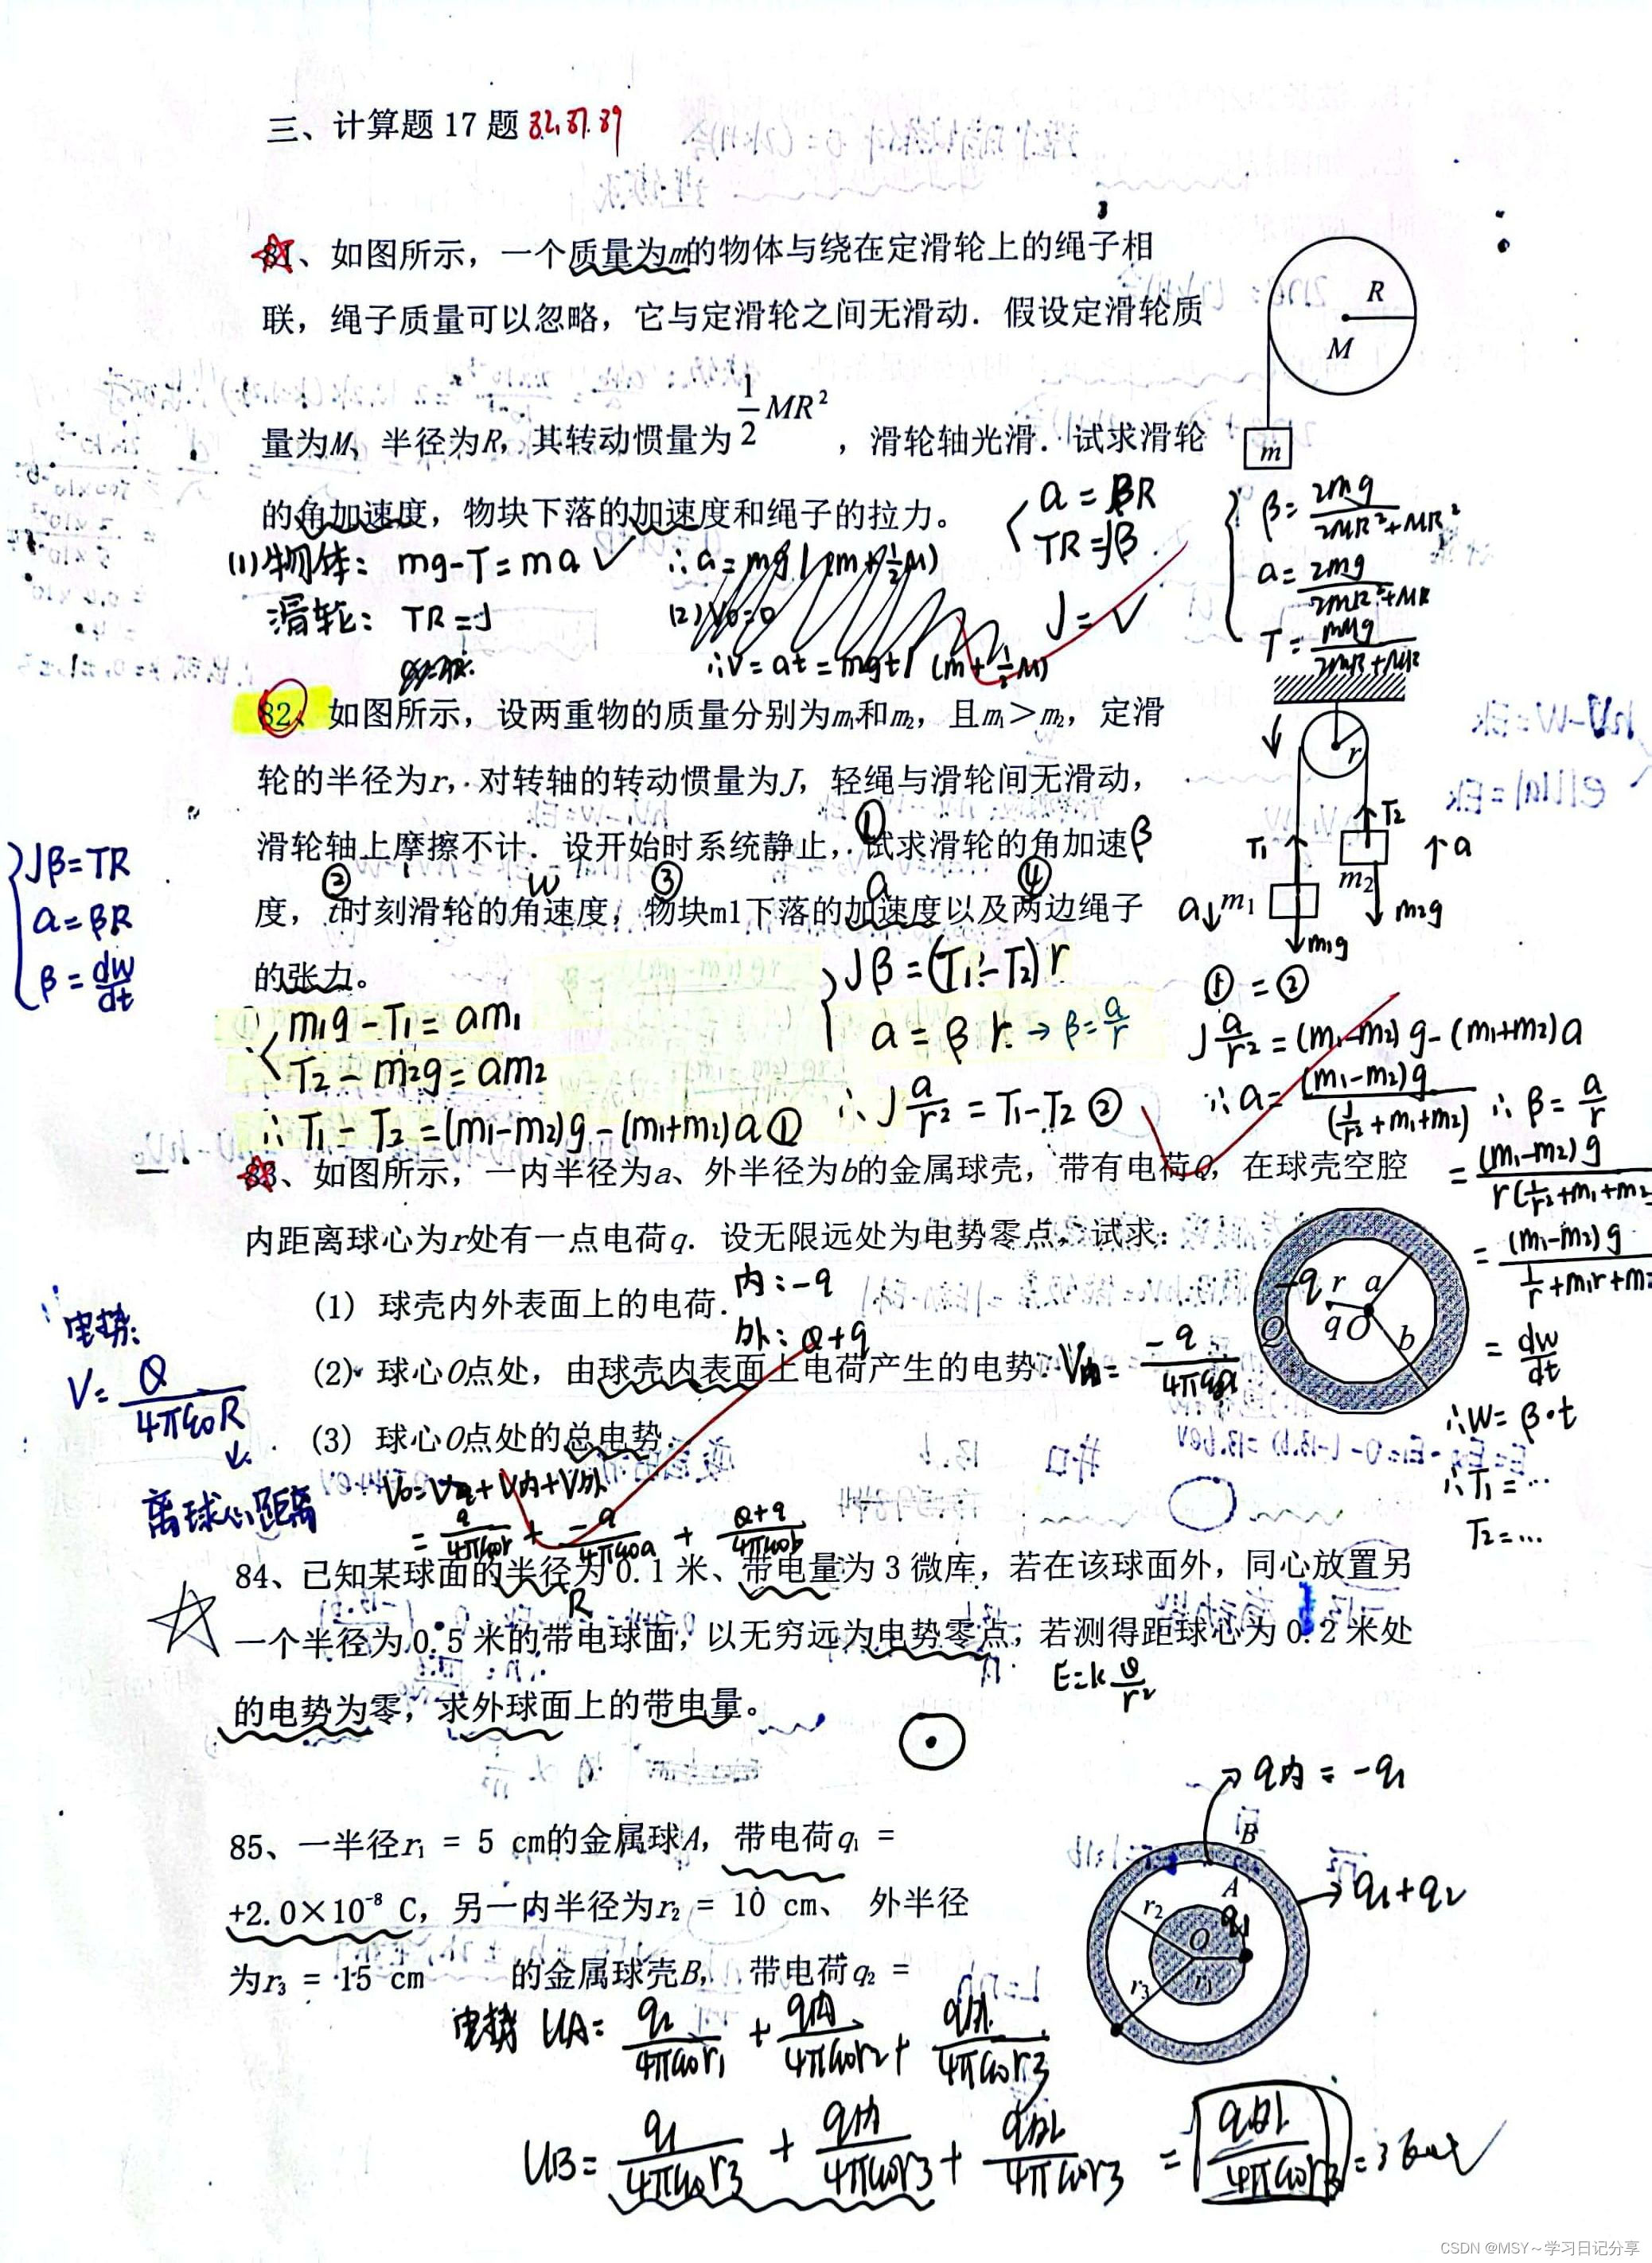 三、计算题 17 题 82. 87. 89
81、如图所示，一个质量为m的物体与绕在定滑轮上的绳子相
联，绳子质量可以忽略，它与定滑轮之间无滑动．假设定滑轮质
量为M、半径为R，其转动惯量为 1/2 MR²，滑轮轴光滑．试求滑轮
的角加速度，物块下落的加速度和绳子的拉力。
R
M
m
a = βR
TR = Jβ
J = ✓
β = 2mg / 2mR²+MR²
a = 2mg / 2mR²+MR
T = mMg / 2mR+MR
(1) 物体： mg-T = ma ✓
∴a = mg / (m+½M)
滑轮： TR = J
(2) V0=0
∴v = at = mgt / (m+½M)
82、如图所示，设两重物的质量分别为m₁和m₂，且m₁＞m₂，定滑
轮的半径为r，对转轴的转动惯量为J，轻绳与滑轮间无滑动，
滑轮轴上摩擦不计．设开始时系统静止，①试求滑轮的角加速β
② w ③ a ④
度，t时刻滑轮的角速度，物块m1下落的加速度以及两边绳子
的张力。
r
T1
T2
↑a
a↓m₁
m₂
m2g
m1g
Jβ = TR
a = βR
β = dw/dt
m1g - T1 = am1
T2 - m2g = am2
∴ T1 - T2 = (m1-m2)g - (m1+m2)a ①
Jβ = (T1-T2) r
a = β r → β = a/r
∴ J a/r² = T1-T2 ②
① = ②
J a/r² = (m1-m2)g - (m1+m2)a
∴ a = (m1-m2)g / (J/r²+m1+m2) ∴ β = a/r
= (m1-m2)g / r(J/r²+m1+m2
= (m1-m2)g / J/r+m1r+m2
= dw/dt
∴ w = β·t
∴ T1 = …
T2 = …
83、如图所示，一内半径为a、外半径为b的金属球壳，带有电荷Q，在球壳空腔
内距离球心为r处有一点电荷q．设无限远处为电势零点，试求：
(1) 球壳内外表面上的电荷． 内：-q
外：Q+q
(2) 球心O点处，由球壳内表面上电荷产生的电势． V内 = -q / 4πε0a
(3) 球心O点处的总电势．
-q r a
Q q O b
电势：
V = Q / 4πε0R
离球心距离
V0 = Vq + V内 + V外
= q / 4πε0r + -q / 4πε0a + Q+q / 4πε0b
84、已知某球面的半径为 0.1 米、带电量为 3 微库，若在该球面外，同心放置另
R
一个半径为 0.5 米的带电球面，以无穷远为电势零点，若测得距球心为 0.2 米处
E = k Q/r²
的电势为零，求外球面上的带电量。
85、一半径r₁ = 5 cm的金属球A，带电荷q₁ =
+2.0×10⁻⁸ C，另一内半径为r₂ = 10 cm、 外半径
为r₃ = 15 cm 的金属球壳B， 带电荷q₂ =
q内 = -q1
B
A
q1+q2
r₂
q1
O
r₁
r₃
电势 UA = / 4πε0r1 + / 4πε0r2 + / 4πε0r3
UB = q1 / 4πε0r3 + / 4πε0r3 + / 4πε0r3 = / 4πε0r3
CSDN @MSY～学习日记分享